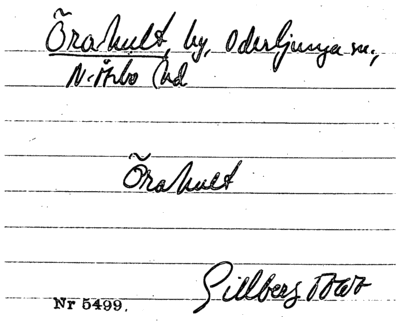 Õrahult, by, Oderljunga sn.,
N. Åsbo hd
Õrahult
Gillberg
Nr 5499.